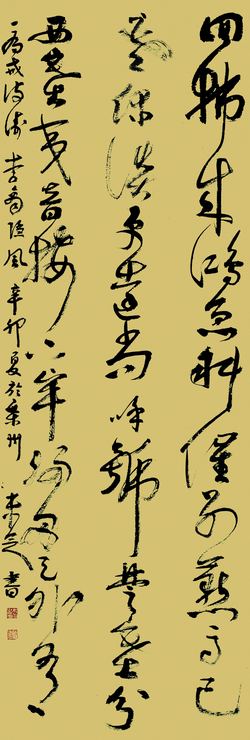 回拂来鴻急斜催别燕高已
寒休惨淡更遠尚呼號楚色分
西塞夷音接下牢歸舟天外有
一為戒波濤 李商隐風 辛卯夏於泉州 書